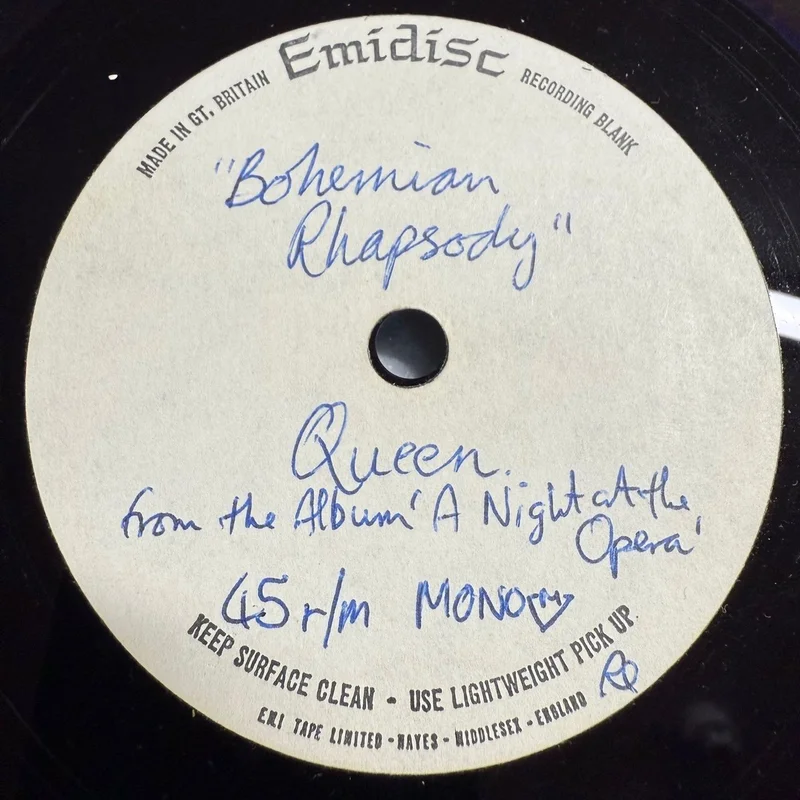 Emidisc
MADE IN GT. BRITAIN
RECORDING BLANK
"Bohemian
Rhapsody"
Queen.
from the Album 'A Night at the
Opera'
45 r/m MONO
KEEP SURFACE CLEAN - USE LIGHTWEIGHT PICK UP
EMI TAPE LIMITED - HAYES - MIDDLESEX - ENGLAND